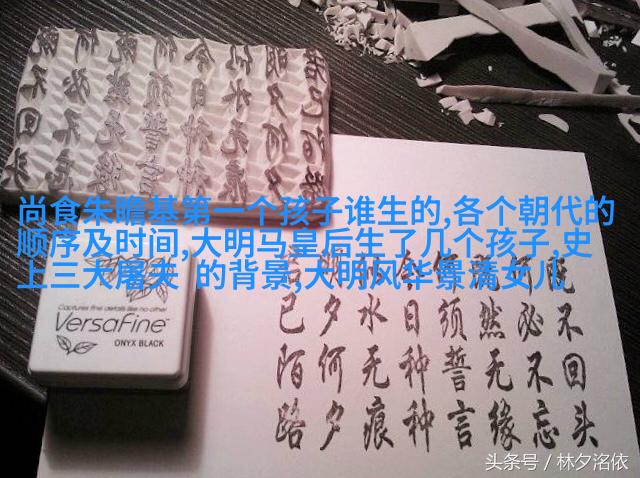 尚食朱瞻基第一个孩子谁生的,各个朝代的
顺序及时间,大明马皇后生了几个孩子,史
上三大屠夫 的背景,大明风华景清女儿
既不回头
何必不忘
既然无缘
何须誓言
今日种种
似水无痕
明夕何夕
君已陌路
Captures fine details like no other
VersaFine
ONYX BLACK
头条号／林夕洺依